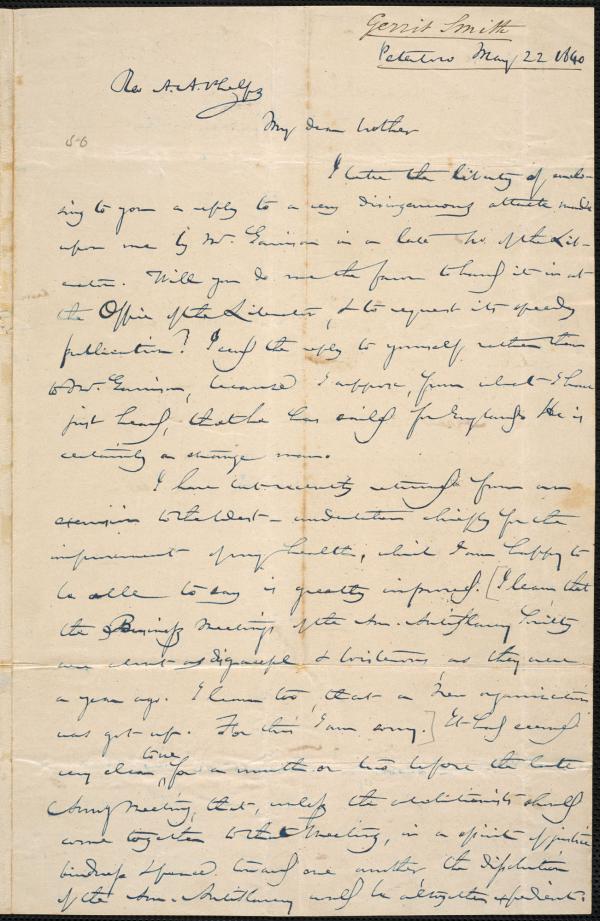 Gerrit Smith
Peterboro May 22 1840
Rev A. A. Phelps
My dear brother
I take the liberty of enclo-
sing to you a reply to a very disingenuous attack made
upon me by Mr. Garrison in a late No. of the Lib-
erator. Will you do me the favor to hand it in at
the Office of the Liberator, & to request its speedy
publication? I send the reply to yourself rather than
to Mr. Garrison, because I suppose, from what I have
just heard, that he has sailed for England. He is
certainly a strange man.
I have but recently returned from an
excursion to the West - undertaken chiefly for the
improvement of my health, which I am happy to
be able to say is greatly improved. [I learn that
the Business Meetings of the Am. Antislavery Society
were about as disgraceful & boisterous as they were
a year ago. I learn too, that a New organization
was got up. For this I am sorry.] It had seemed
very clear to me, for a month or two before the late
Annual Meeting, that, unless the abolitionists should
come together to that Meeting, in a spirit of justice
kindness & peace toward one another, the dissolution
of the Am. Antislavery would be altogether expedient.